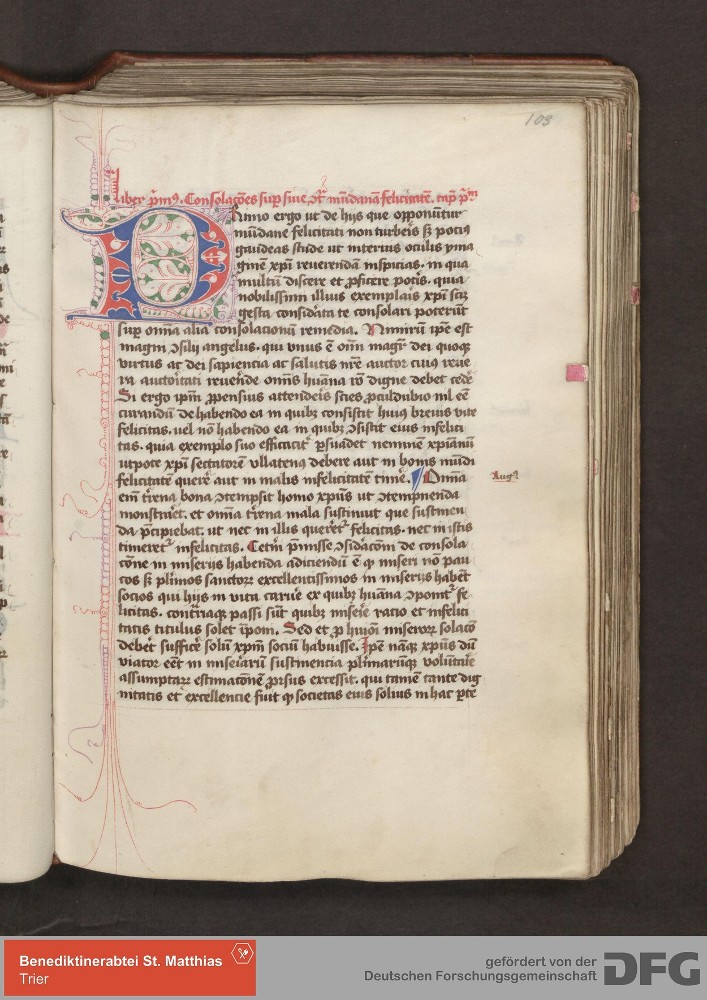 103
Liber pͥmꝰ. Consolacōes suꝑ sine 
felicitatē. capᵐ pͥmᵐ
Primo ergo ut de hijs que opponūtur
mūdane felicitati non turberis sꝫ pociꝰ
gaudeas stude ut interius oculis yma
ginē xp̄i reuerendā inspicias. in qua
multū discere et ꝓficere potis. qua
nobilissimi illius exemplaris xp̄i scꝫ
gesta considāta te consolari poterūt
suꝑ om̄ia alia consolacionū remedia. Nimirū ip̄e est
magni ꝯsilij angelus. qui vnus ē om̄i magr̄ dei quoqꝫ
virtus ac dei sapiencia ac salutis nr̄e auctor cuiꝰ reue
ra auctoritati reuerēde om̄is huāna rō digne debet cedē
Si ergo ip̄m ꝓpensius attenderis scies ꝓculdubio nil eē
curandū de habendo ea in quibꝫ consistit huiꝰ breuis vite
felicitas. uel nō habendo ea in quibꝫ ꝯsistit eius infelici
tas. quia exemplo suo efficacit̄ ꝑsuadet neminē xp̄ianū
utpote xp̄i sectatorē vllatenꝰ debere aut in bonis mūdi
felicitatē querē aut in malis infelicitatē timē. Om̄ia
Augꝰ
em̄ tr̄rena bona ꝯtempsit homo xp̄us ut ꝯtempnenda
monstraret. et om̄ia tr̄rena mala sustinuit que sustinen
da p̄cipiebat. ut nec in illis quereret᷑ felicitas. nec in istis
timeret᷑ infelicitas. Cetm̄ p̄misse ꝯsidacōni de consola
cōne in miserijs habenda adiciendū ē ꝙ miseri nō pau
cos sꝫ plimos sanctoꝝ excellentissimos in miserijs habēt
socios qui hijs in vita caruer̄ ex quibꝫ huāna ꝯponit᷑ fe
licitas. contrariaqꝫ passi sūt quibꝫ miserie racio et infelici
tatis titulus solet īponi. Sed et ꝓ huiōi miseroꝝ solacō
debet sufficē solū xpm̄ sociū habuisse. Ip̄e nāqꝫ xp̄us dū
viator eēt in miseriarū sustinencia plimarūqꝫ volūtarie
assumptaꝝ estimacōnē ꝓrsus excessit. qui tamē tante dig
nitatis et excellencie fuit ꝙ societas eius solius in hac ꝑte
Benediktinerabtei St. Matthias
Trier
gefördert von der
Deutschen Forschungsgemeinschaft
DFG